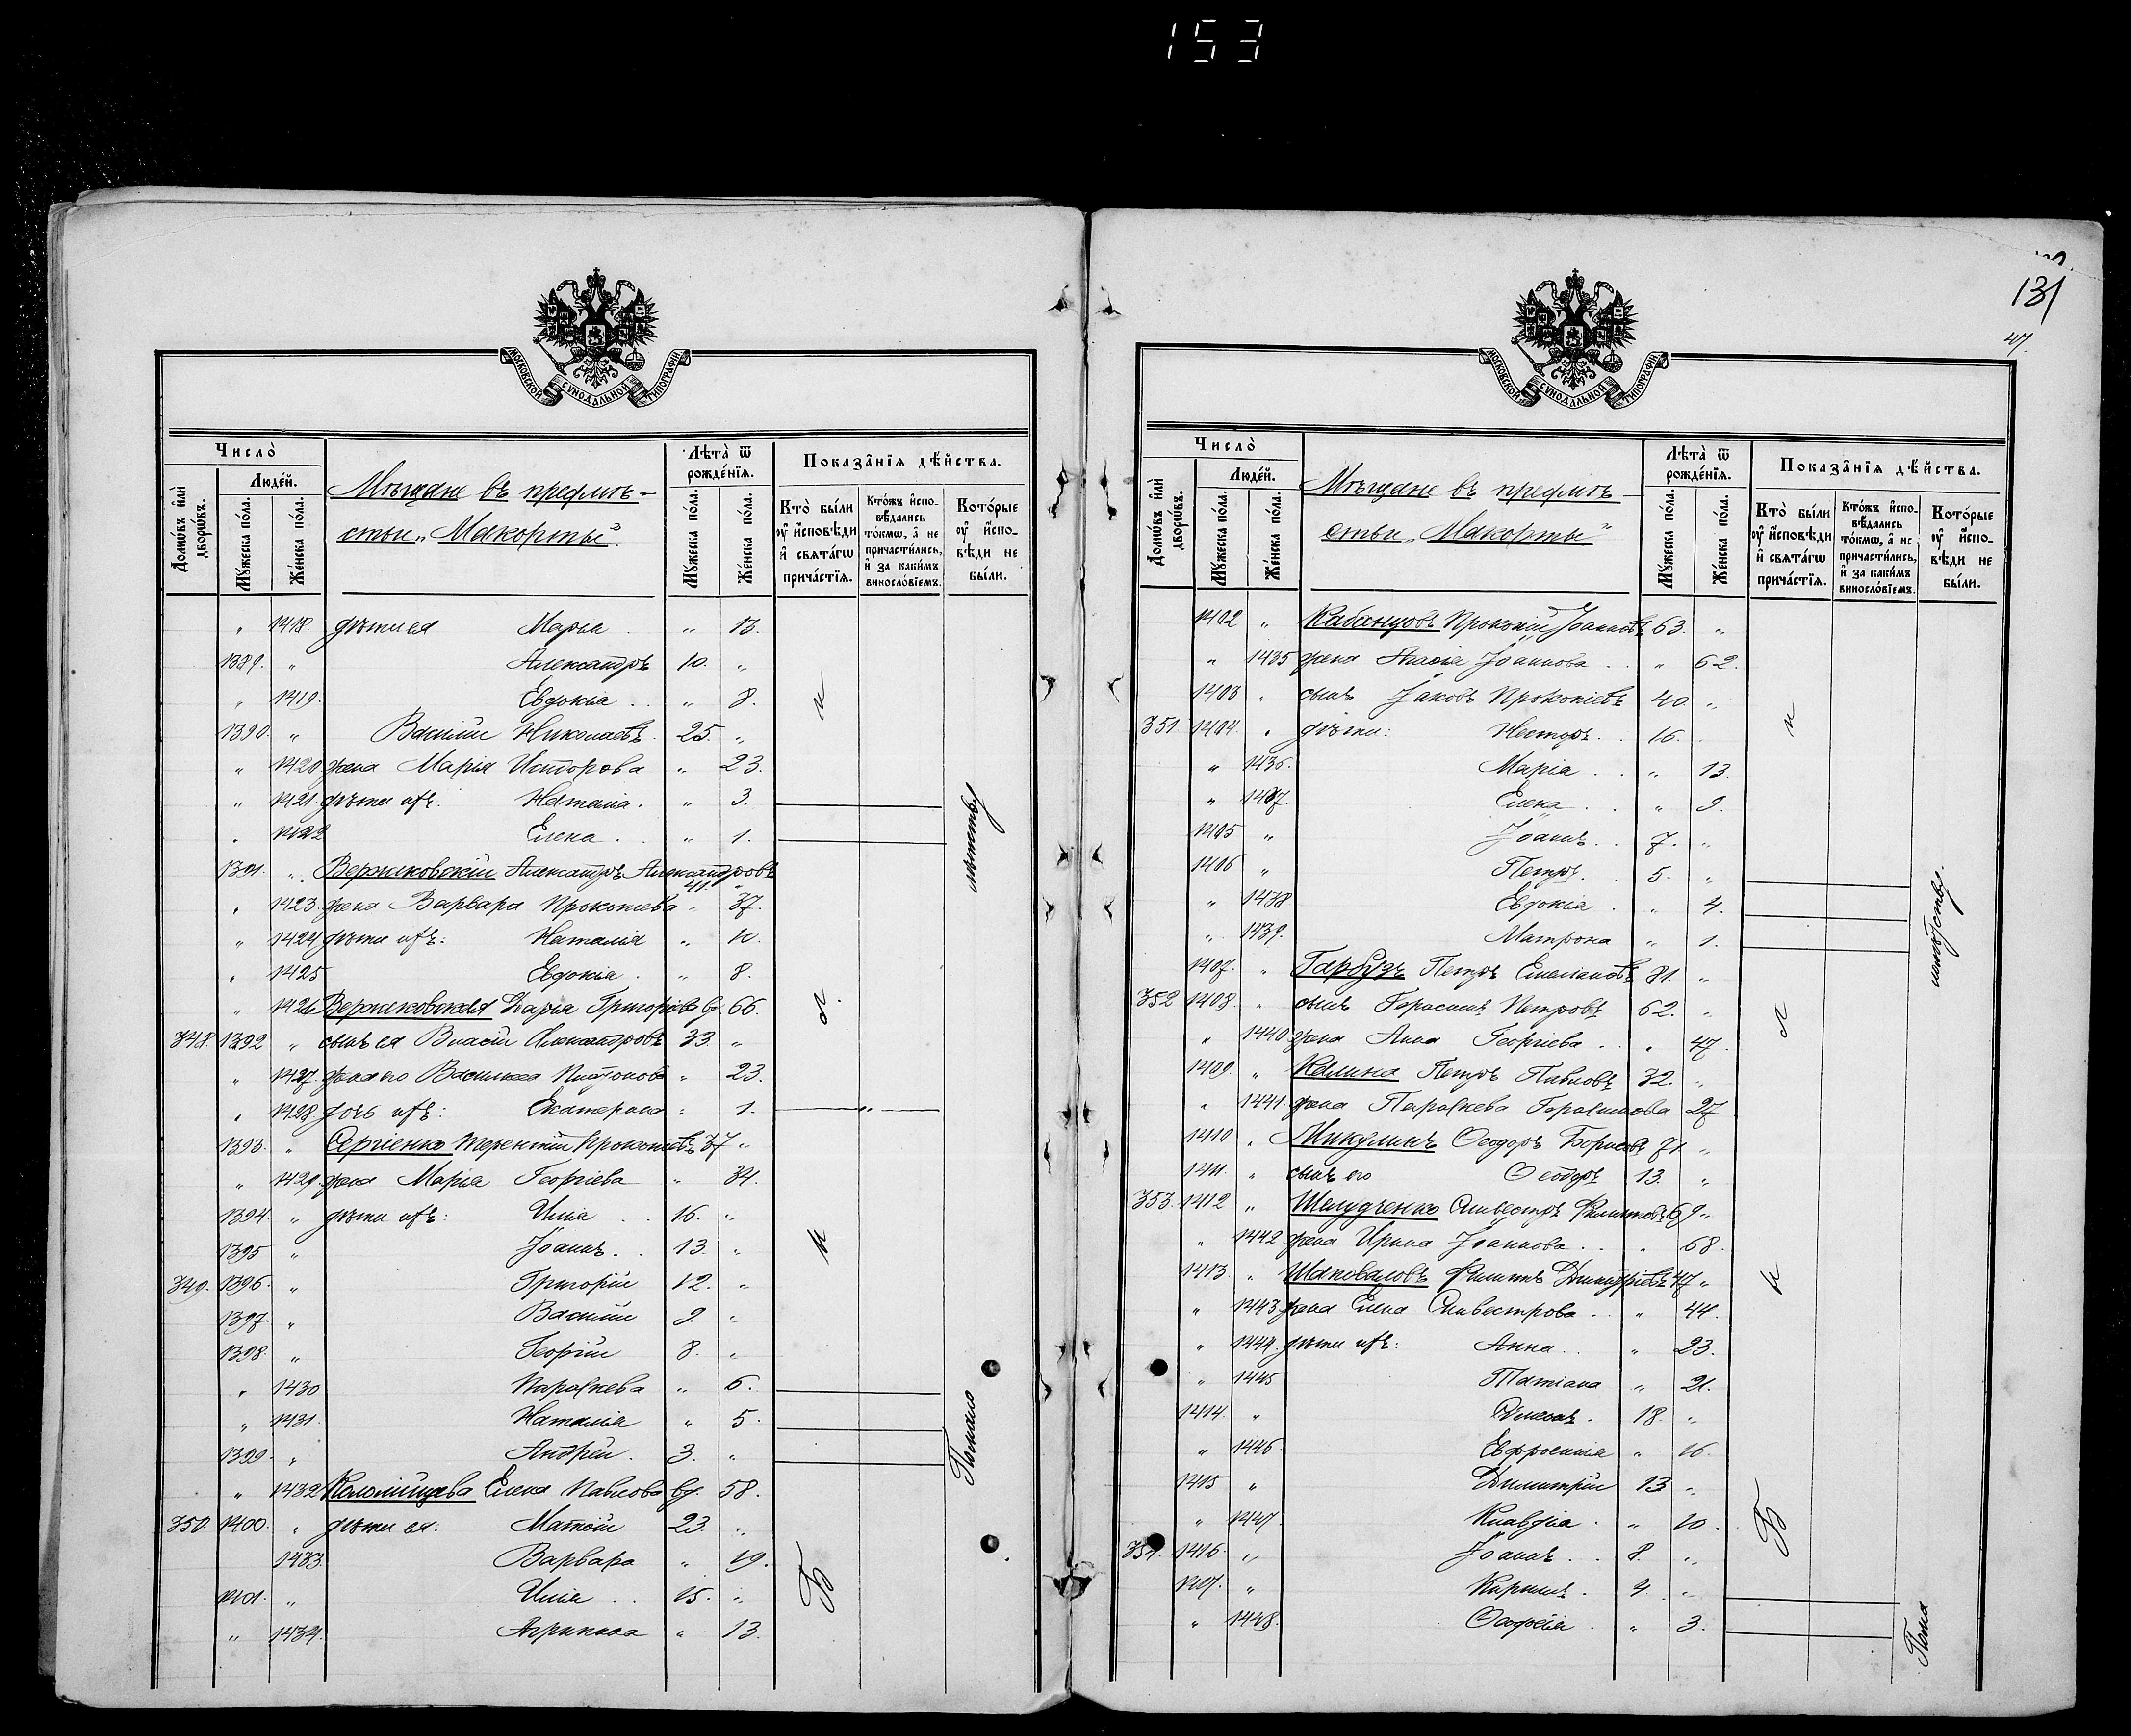 153
МОСКОВСКОЙ СѴНОДАЛЬНОЙ ТИПОГРАФІИ
Число̀
Домѡ́въ и҆лѝ дворѡ́въ.
Люде́й.
Мꙋ́жеска по́ла.
Же́нска по́ла.
Мѣщане въ предмѣ-
стьи „Макорты".
Лѣ́та ѿ рожде́нїѧ.
Мꙋ́жеска по́ла.
Же́нска по́ла.
Показа̑нїѧ дѣ́йства.
Кто̀ бы́ли оу҆ и҆сповѣ́ди и҆ свѧта́гѡ прича́стїѧ.
Кто́жъ и҆спо-вѣ́дались то́кмѡ, а҆ не причасти́лись, и҆ за каки́мъ виносло́вїемъ.
Кото́рые оу҆ и҆спо-вѣ́ди не бы́ли.
„ 1418. дѣти ея Марья . „ 13.
1389. „ Александръ 10. „
„ 1419. Евдокія . . „ 8.
1390. „ Василій Николаевъ. 25. „
„ 1420 жена Марія Исидорова „ 23.
„ 1421. дѣти ихъ. Наталія . „ 3.
„ 1422 Елена . . „ 1.
1391. „ Вержиковскій Александръ Александровъ 41. „
„ 1423. жена Варвара Прокопіева „ 37.
„ 1424 дѣти ихъ: Наталія „ 10.
„ 1425 Евдокія . „ 8.
„ 1426 Вержиковская Дарья Григоріева вд. 66.
348. 1392 „ сынъ ея Власій Александровъ 33. „
„ 1427. жена его Василиса Платонова „ 23.
„ 1428. дочь ихъ: Екатерина „ 1.
1393. „ Сергіенко Терентій Прокопіевъ 37 „
„ 1429 жена Марія Георгіева „ 34.
1394. „ дѣти ихъ: Илія . . 16. „
1395 „ Іоаннъ . . 13. „
349. 1396. „ Григорій 12. „
1397. „ Василій 9. „
1398. „ Георгій 8. „
„ 1430 Параскева „ 6.
„ 1431. Наталія „ 5.
1399. „ Андрей . 3. „
„ 1432 Коломійцева Елена Павлова вд. 58.
350. 1400. „ дѣти ея: Матѳій 23. „
1433. Варвара „ 19.
1401. „ Илія . . 15. „
„ 1434. Агриппина „ 13.
и
л.
и
Б
131
47.
МОСКОВСКОЙ СѴНОДАЛЬНОЙ ТИПОГРАФІИ
Число̀
Домѡ́въ и҆лѝ дворѡ́въ.
Люде́й.
Мꙋ́жеска по́ла.
Же́нска по́ла.
Мѣщане въ предмѣ-
стьи „Макорты"
Лѣ́та ѿ рожде́нїѧ.
Мꙋ́жеска по́ла.
Же́нска по́ла.
Показа̑нїѧ дѣ́йства.
Кто̀ бы́ли оу҆ и҆сповѣ́ди и҆ свѧта́гѡ прича́стїѧ.
Кто́жъ и҆спо-вѣ́дались то́кмѡ, а҆ не причасти́лись, и҆ за каки́мъ виносло́вїемъ.
Кото́рые оу҆ и҆спо-вѣ́ди не бы́ли.
1402 „ Кабанцовъ Прокопій Іоанновъ 63. „
„ 1435 жена Іоаннова . . „ 62.
1403 „ сынъ Іаковъ Прокопіевъ 40. „
351. 1404. „ дѣти: Несторъ. . 16.
„ 1436. Марія . . „ 13.
„ 1437. Елена . . „ 9.
1405 „ Іоаннъ . . 7. „
1406 „ Петръ. . 5. „
„ 1438 Евдокія . „ 4.
„ 1439. Матрона „ 1.
1407. „ Гарбузъ Петръ Емеліановъ 81. „
352 1408. „ сынъ Герасимъ Петровъ 62. „
„ 1440. жена Анна Георгіева . . „ 47.
1409. „ Калина Петръ Павловъ 32. „
„ 1441. жена Параскева Герасимова 27
1410 „ Микулинъ Ѳеодоръ Борисовъ 71. „
1411. „ сынъ его Ѳеодоръ 13. „
353. 1412 „ Шелудченко Сильвестръ Филипповъ 69 „
„ 1442 жена Ирина Іоаннова . . „ 68.
1413. „ Шаповаловъ Филиппъ Димитріевъ 47 „
„ 1443 жена Елена Сильвестрова . . „ 44.
„ 1444. дѣти ихъ: Анна . . „ 23.
„ 1445 Татіана „ 21.
1414. „ 18. „
„ 1446. Евфросинія „ 16.
1415 „ Димитрій 13 „
„ 1447. Клавдія . „ 10.
354. 1416. „ Іоаннъ . . 8. „
1417. „ Кириллъ . 4. „
„ 1448. . „ 3.
и
л
и
Б